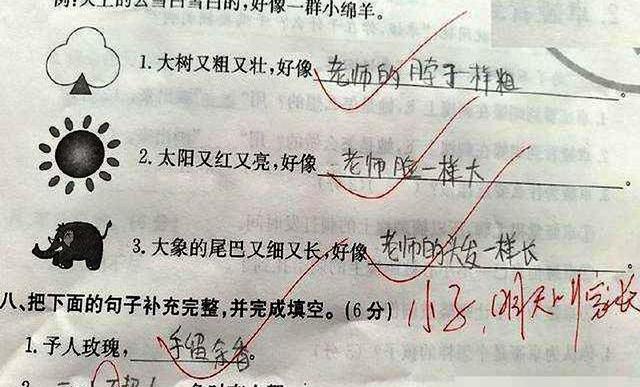 例:天上的云雪白雪白的,好像一群小绵羊。
1.大树又粗又壮,好像老师的脖子一样粗。
2.太阳又红又亮,好像老师脸一样大。
3.大象的尾巴又细又长,好像老师的头发一样长。
小子,明天叫家长
八、把下面的句子补充完整,并完成填空。(6分)
1.予人玫瑰,手留余香。